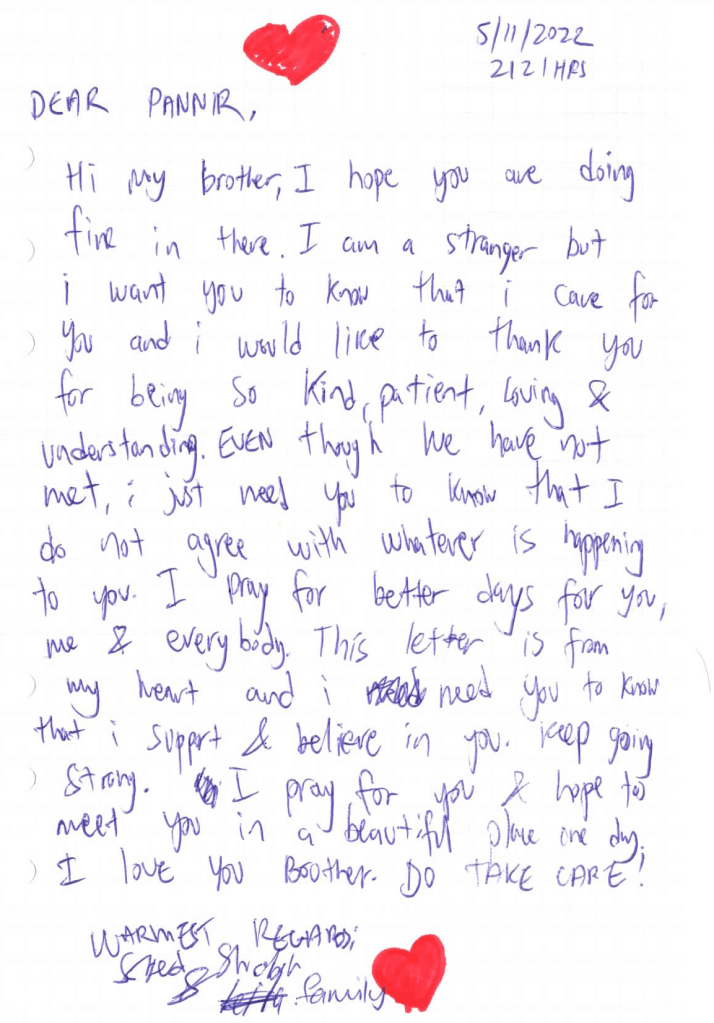 5/11/2022
2121HRS
DEAR PANNIR,
Hi my brother, I hope you are doing
fine in there. I am a stranger but
i want you to know that i care for
you and i would like to thank you
for being so kind, patient, loving &
understanding. EVEN though we have not
met, i just need you to know that I
do not agree with whatever is happening
to you. I pray for better days for you,
me & everybody. This letter is from
my heart and i need you to know
that i support & believe in you. Keep going
strong. I pray for you & hope to
meet you in a beautiful place one day.
I love you Boother. DO TAKE CARE!
WARMEST REGARDS;
&
family